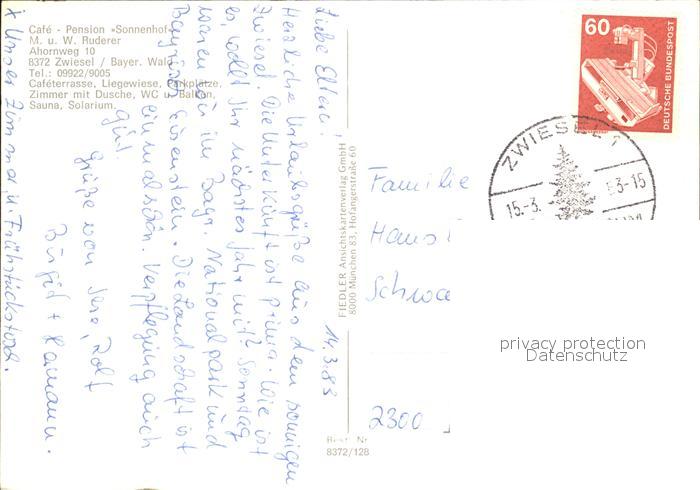 Café - Pension »Sonnenhof«
M. u. W. Ruderer
Ahornweg 10
8372 Zwiesel / Bayer. Wald
Tel.: 09922/9005
Caféterrasse, Liegewiese, Parkplätze,
Zimmer mit Dusche, WC u. Balkon,
Sauna, Solarium.
14.3.83
Liebe Eltern!
Herzliche Urlaubsgrüße aus dem sonnigen
Zwiesel. Die Unterkunft ist prima. Wie ist
es, wollt Ihr nächstes Jahr mit? Sonntag
waren wir im Bayr. Nationalpark und
Bayrisch Eisenstein. Die Landschaft ist
einmal schön. Verpflegung auch
gut.
Grüße von
Birgit +
x Unser Zimmer u. Frühstückstisch.
FIEDLER Ansichtskartenverlag GmbH
8000 München 83, Hofangerstraße 60
Best. Nr
8372/128
60
DEUTSCHE BUNDESPOST
ZWIESEL 1
15.-3.
83-15
Familie
Hans
Schroe
2300
privacy protection
Datenschutz